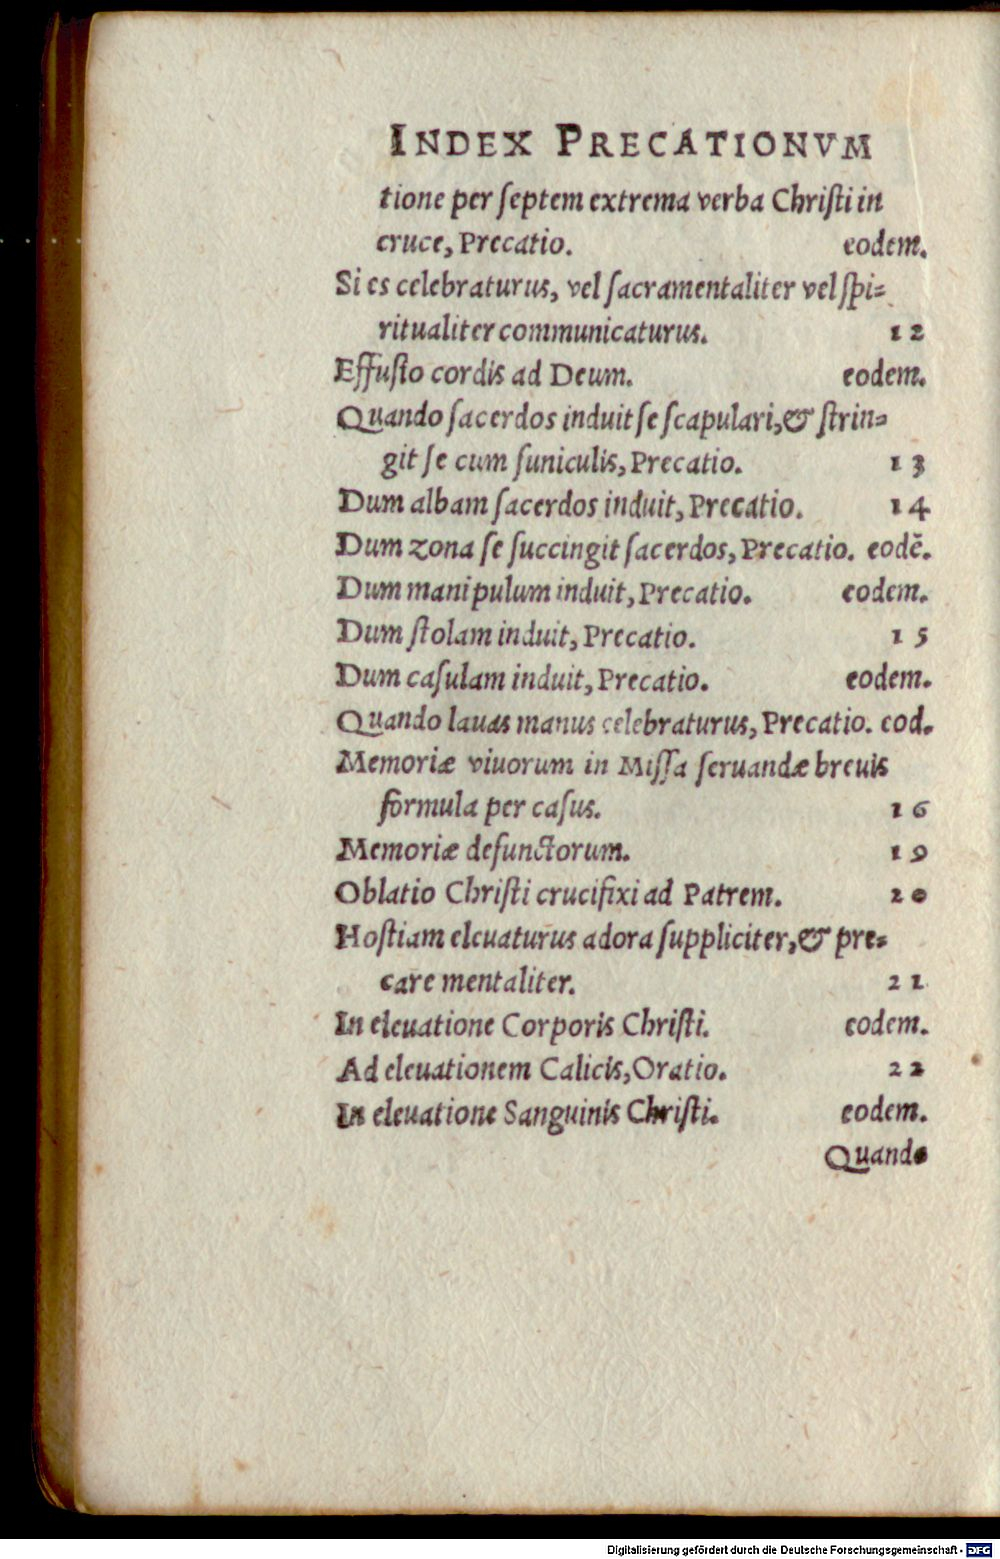 INDEX PRECATIONVM
tione per ſeptem extrema verba Chriſti in
cruce, Precatio. eodem.
Si es celebraturus, vel ſacramentaliter vel ſpi-
ritualiter communicaturus. 12
Effuſio cordis ad Deum. eodem.
Quando ſacerdos induit ſe ſcapulari, & ſtrin-
git ſe cum funiculis, Precatio. 13
Dum albam ſacerdos induit, Precatio. 14
Dum zona ſe ſuccingit ſacerdos, Precatio. eodē.
Dum manipulum induit, Precatio. eodem.
Dum ſtolam induit, Precatio. 15
Dum caſulam induit, Precatio. eodem.
Quando lauas manus celebraturus, Precatio. eod.
Memoriæ viuorum in Miſſa ſeruandæ breuis
formula per caſus. 16
Memoriæ defunctorum. 19
Oblatio Chriſti crucifixi ad Patrem. 20
Hoſtiam eleuaturus adora ſuppliciter, & pre-
care mentaliter. 21
In eleuatione Corporis Chriſti. eodem.
Ad eleuationem Calicis, Oratio. 22
In eleuatione Sanguinis Chriſti. eodem.
Quando
Digitalisierung gefördert durch die Deutsche Forschungsgemeinschaft - DFG